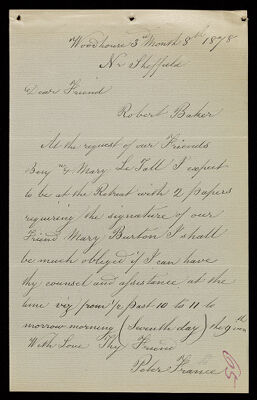 Woodhouse 3rd Month 8th 1878
Nr Sheffield
Dear Friend
Robert Baker
At the request of our Friends
Benj n & Mary Le Tall I expect
to be at the Retreat with 2 papers
requiring the signature of our
Friend Mary Burton I shall
be much obliged if I can have
thy counsel and assistance at the
time viz from 1/2 past 10 to 11 to
morrow morning (Seventh day) the 9th
With Love Thy Friend
Peter France